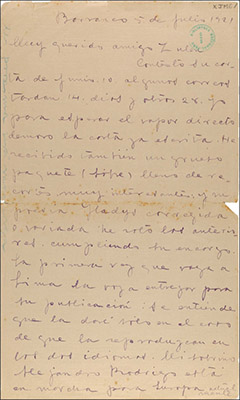 Barranco 5 de julio 1921
Muy querido amigo Zulen
Contesto su car
ta de junio 10. algunos correos
tardan 14 dias y otros 28. Yo
para esperar el vapor directo
demoro la carta ya escrita. He
recibido también un grueso
paquete (sobre) lleno de re
cortes muy interesantes y su
poesia. Gladys corregida
o variada he roto los anterio
res. cumpliendo su encargo.
La primera vez que vaya a
Lima la voy a entregar para
su publicación: Se entiende
que la daré solo en el caso
de que la reproduzcan en
los dos idiomas. Mi sobrino
Alejandro Rodrigo está
en marcha para Europa